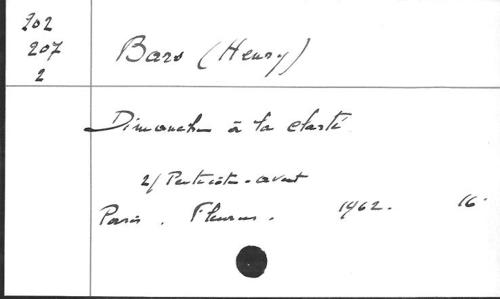 202
207
2
Bars (Henry)
Dimanche à la clarté
2/ Pentecôte - avent
Paris. Fleurus. 1962. 16